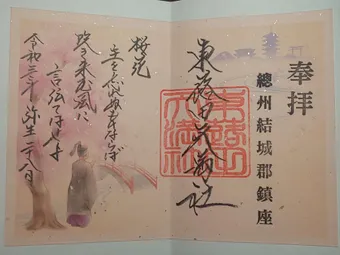 奉拝
總州結城郡鎮座
東蕗田天満社
桜花
主をわすれぬものならば
吹き来む風に
言伝てはせよ
令和三年 弥生